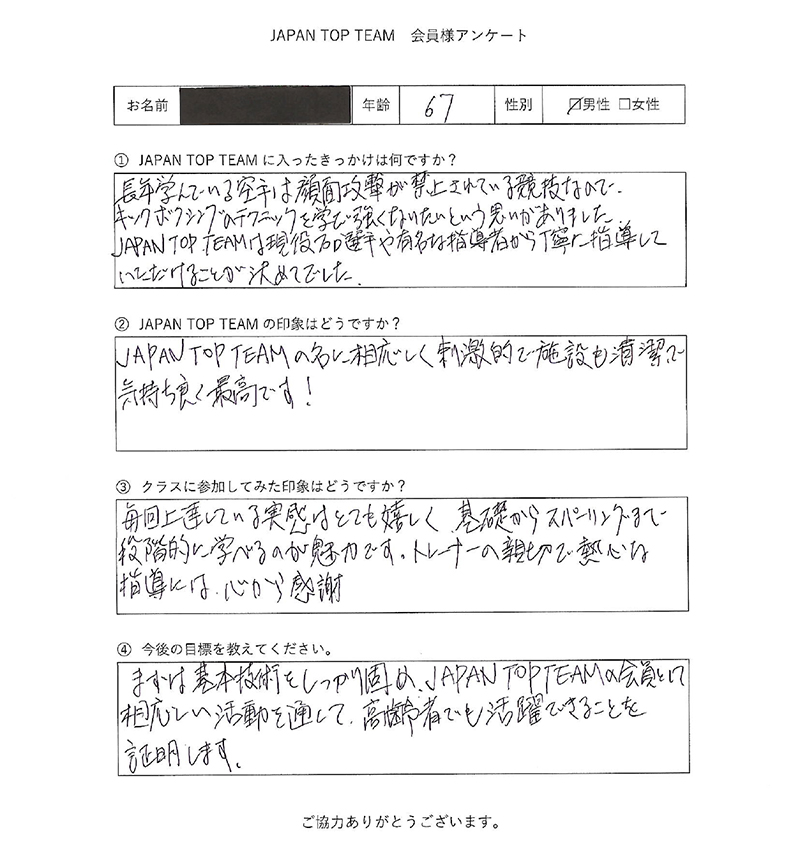 JAPAN TOP TEAM 会員様アンケート
お名前 年齢 67 性別 ☑男性 □女性
① JAPAN TOP TEAM に入ったきっかけは何ですか？
長年学んでいる空手は顔面攻撃が禁止されている競技なので、
キックボクシングのテクニックを学び強くなりたいという思いがありました。
JAPAN TOP TEAMは現役プロ選手や有名な指導者から丁寧に指導して
いただけることが決めてでした。
② JAPAN TOP TEAM の印象はどうですか？
JAPAN TOP TEAMの名に相応しく刺激的で施設も清潔で
気持ち良く最高です！
③ クラスに参加してみた印象はどうですか？
毎回上達している実感はとても嬉しく 基礎からスパーリングまで
段階的に学べるのが魅力です。トレーナーの親切で熱心な
指導には、心から感謝
④ 今後の目標を教えてください。
まずは基本技術をしっかり固め、JAPAN TOP TEAMの会員として
相応しい活動を通して、高齢者でも活躍できることを
証明します。
ご協力ありがとうございます。